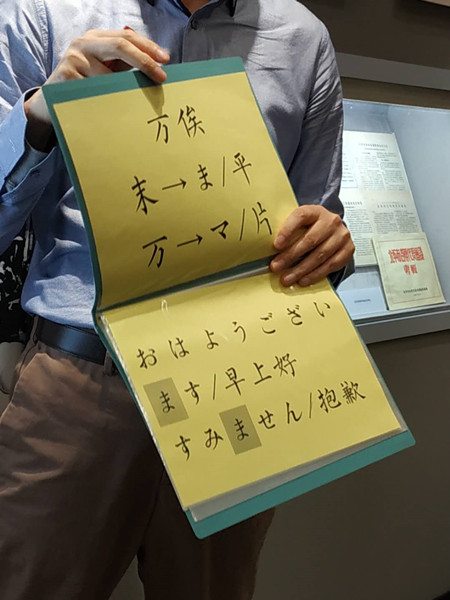 万俟
末→ま/平
万→マ/片
おはようござい
ます/早上好
すみません/抱歉